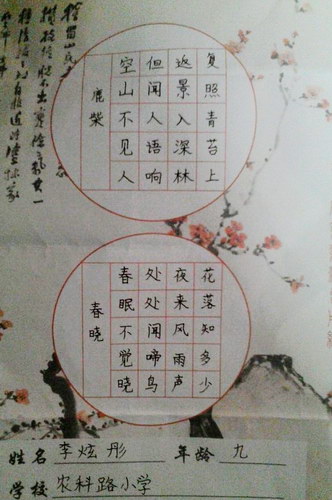 鹿柴
空山不见人
但闻人语响
返景入深林
复照青苔上
春晓
春眠不觉晓
处处闻啼鸟
夜来风雨声
花落知多少
姓名 李炫彤 年龄 九
学校 农科路小学